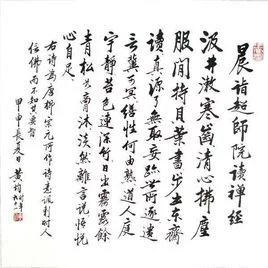 晨詣超師院讀禪經
汲井漱寒齒清心拂塵
服閒持貝葉書步出東齋
讀真源了無取妄跡世所逐遺
言冀可冥繕性何由熟道人庭
宇静苔色連深竹日出霧露餘
青松如膏沐淡然離言說悟悦
心自足
右詩為唐柳宗元所作詩意諷刺时人
信佛而不知其要者
甲申長夏日黄均